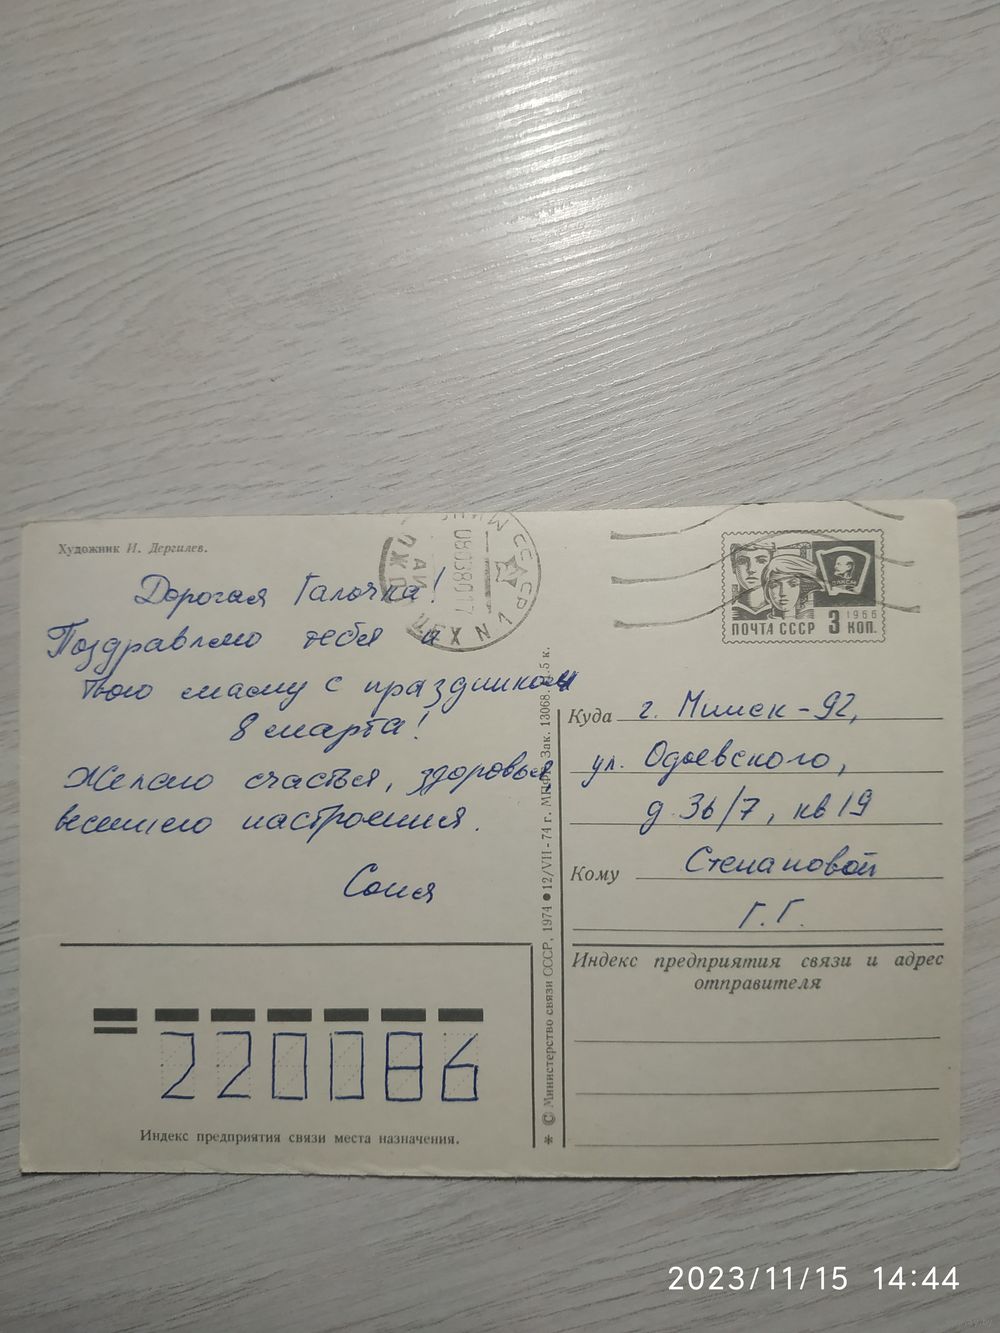 Художник И. Дергилев.
Дорогая Галочка!
Поздравляю тебя и
твою маму с праздником
8 марта!
Желаю счастья, здоровья,
весеннего настроения.
Соня
220086
Индекс предприятия связи места назначения.
* © Министерство связи СССР, 1974 ● 12/VII-74 г. Зак. 13068. 5 к.
СССР
080380 17
ПОЧТА СССР 3 КОП.
1966
ВЛКСМ
Куда г. Минск-92,
ул. Одоевского,
д 36/7, кв 19
Кому Степановой
Г. Г.
Индекс предприятия связи и адрес
отправителя
2023/11/15 14:44